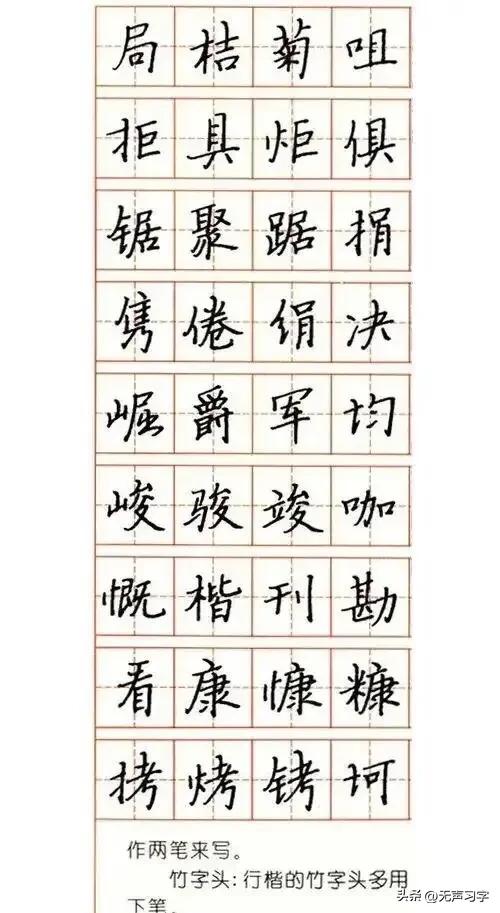 局桔菊咀
拒具炬俱
锯聚踞捐
隽倦绢决
崛爵军均
峻骏竣咖
慨楷刊勘
看康慷糠
拷烤铐坷
作两笔来写。
竹字头:行楷的竹字头多用
下笔。
头条@无声习字